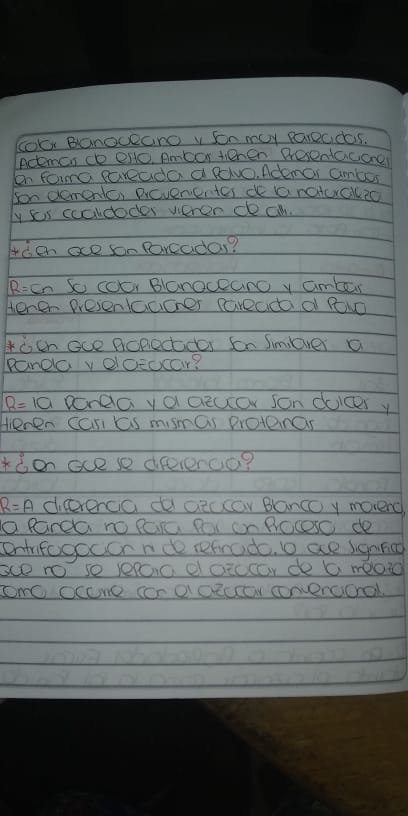 color Blanoceano y son muy Parecidos.
Ademas de esto Ambos tienen Presentaciones
en Forma Parecida al Polvo. Ademas ambos
son elementos Provenientes de la naturaleza
y sus cualidades vienen de alli.
*¿en que son Parecidas?
R= en su color Blanoceano y ambas
tienen Presentaciones Parecida al Polvo
*¿en que Propiedades son similares la
Panela y el azucar?
R= la Panela y el azucar son dulces y
tienen casi las mismas Proteinas
*¿en que se diferencia?
R= A diferencia del azucar Blanco y morena,
la Panela no Pasa Por un Proceso de
centrifugacion ni de refinado, lo que significa
que no se separa el azucar de la melaza
como ocurre con el azucar convencional.